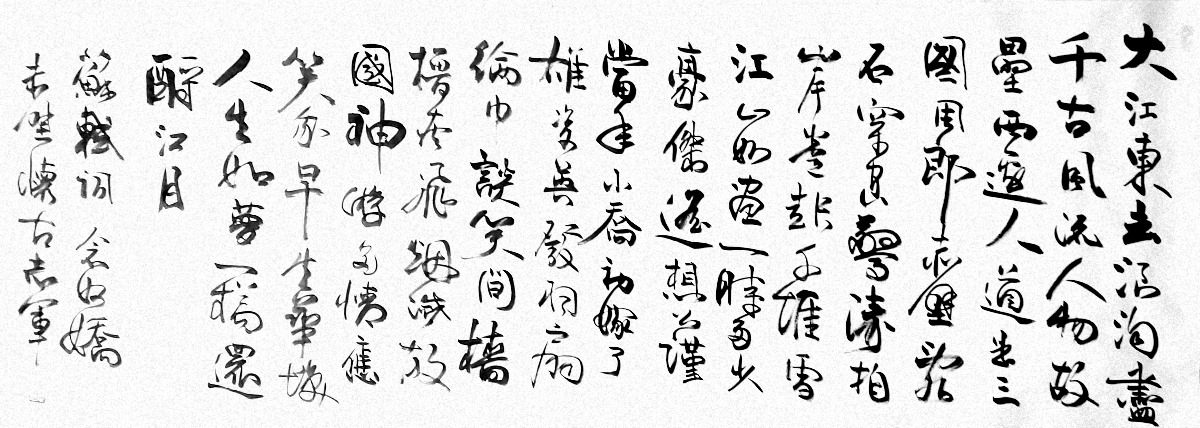 大江東去浪淘盡
千古風流人物故
壘西邊人道是三
國周郎赤壁亂
石穿空驚濤拍
岸卷起千堆雪
江山如畫一時多少
豪傑遙想公瑾
當年小喬初嫁了
雄姿英發羽扇
綸巾談笑間檣
櫓灰飛烟滅故
國神游多情應
笑我早生華髮
人生如夢一樽還
酹江月
蘇軾詞 念奴嬌
赤壁懷古志軍